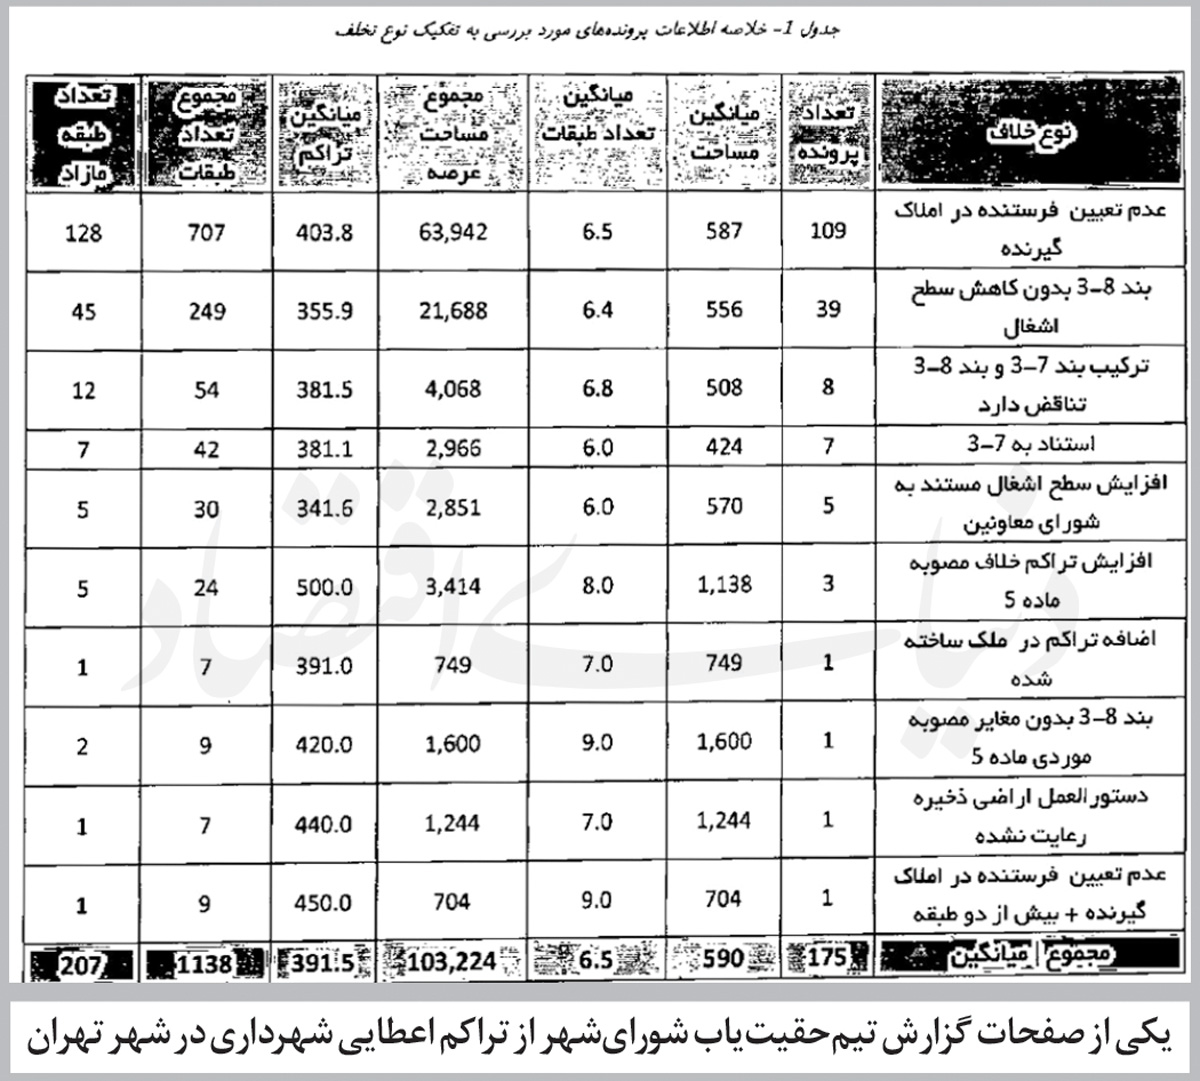 جدول 1- خلاصه اطلاعات پرونده‌های مورد بررسی به تفکیک نوع تخلف
نوع خلاف | تعداد پرونده | میانگین مساحت | میانگین تعداد طبقات | مجموع مساحت عرصه | میانگین تراکم | مجموع تعداد طبقات | تعداد طبقه مازاد
عدم تعیین فرستنده در املاک گیرنده | 109 | 587 | 6.5 | 63,942 | 403.8 | 707 | 128
بند 8-3 بدون کاهش سطح اشغال | 39 | 556 | 6.4 | 21,688 | 355.9 | 249 | 45
ترکیب بند 7-3 و بند 8-3 تناقض دارد | 8 | 508 | 6.8 | 4,068 | 381.5 | 54 | 12
استناد به 7-3 | 7 | 424 | 6.0 | 2,966 | 381.1 | 42 | 7
افزایش سطح اشغال مستند به شورای معاونین | 5 | 570 | 6.0 | 2,851 | 341.6 | 30 | 5
افزایش تراکم خلاف مصوبه ماده 5 | 3 | 1,138 | 8.0 | 3,414 | 500.0 | 24 | 5
اضافه تراکم در ملک ساخته شده | 1 | 749 | 7.0 | 749 | 391.0 | 7 | 1
بند 8-3 بدون مغایر مصوبه موردی ماده 5 | 1 | 1,600 | 9.0 | 1,600 | 420.0 | 9 | 2
دستورالعمل اراضی ذخیره رعایت نشده | 1 | 1,244 | 7.0 | 1,244 | 440.0 | 7 | 1
عدم تعیین فرستنده در املاک گیرنده + بیش از دو طبقه | 1 | 704 | 9.0 | 704 | 450.0 | 9 | 1
مجموع | میانگین | 175 | 590 | 6.5 | 103,224 | 391.5 | 1138 | 207
دنیای اقتصاد
یکی از صفحات گزارش تیم حقیت‌یاب شورای‌شهر از تراکم اعطایی شهرداری در شهر تهران